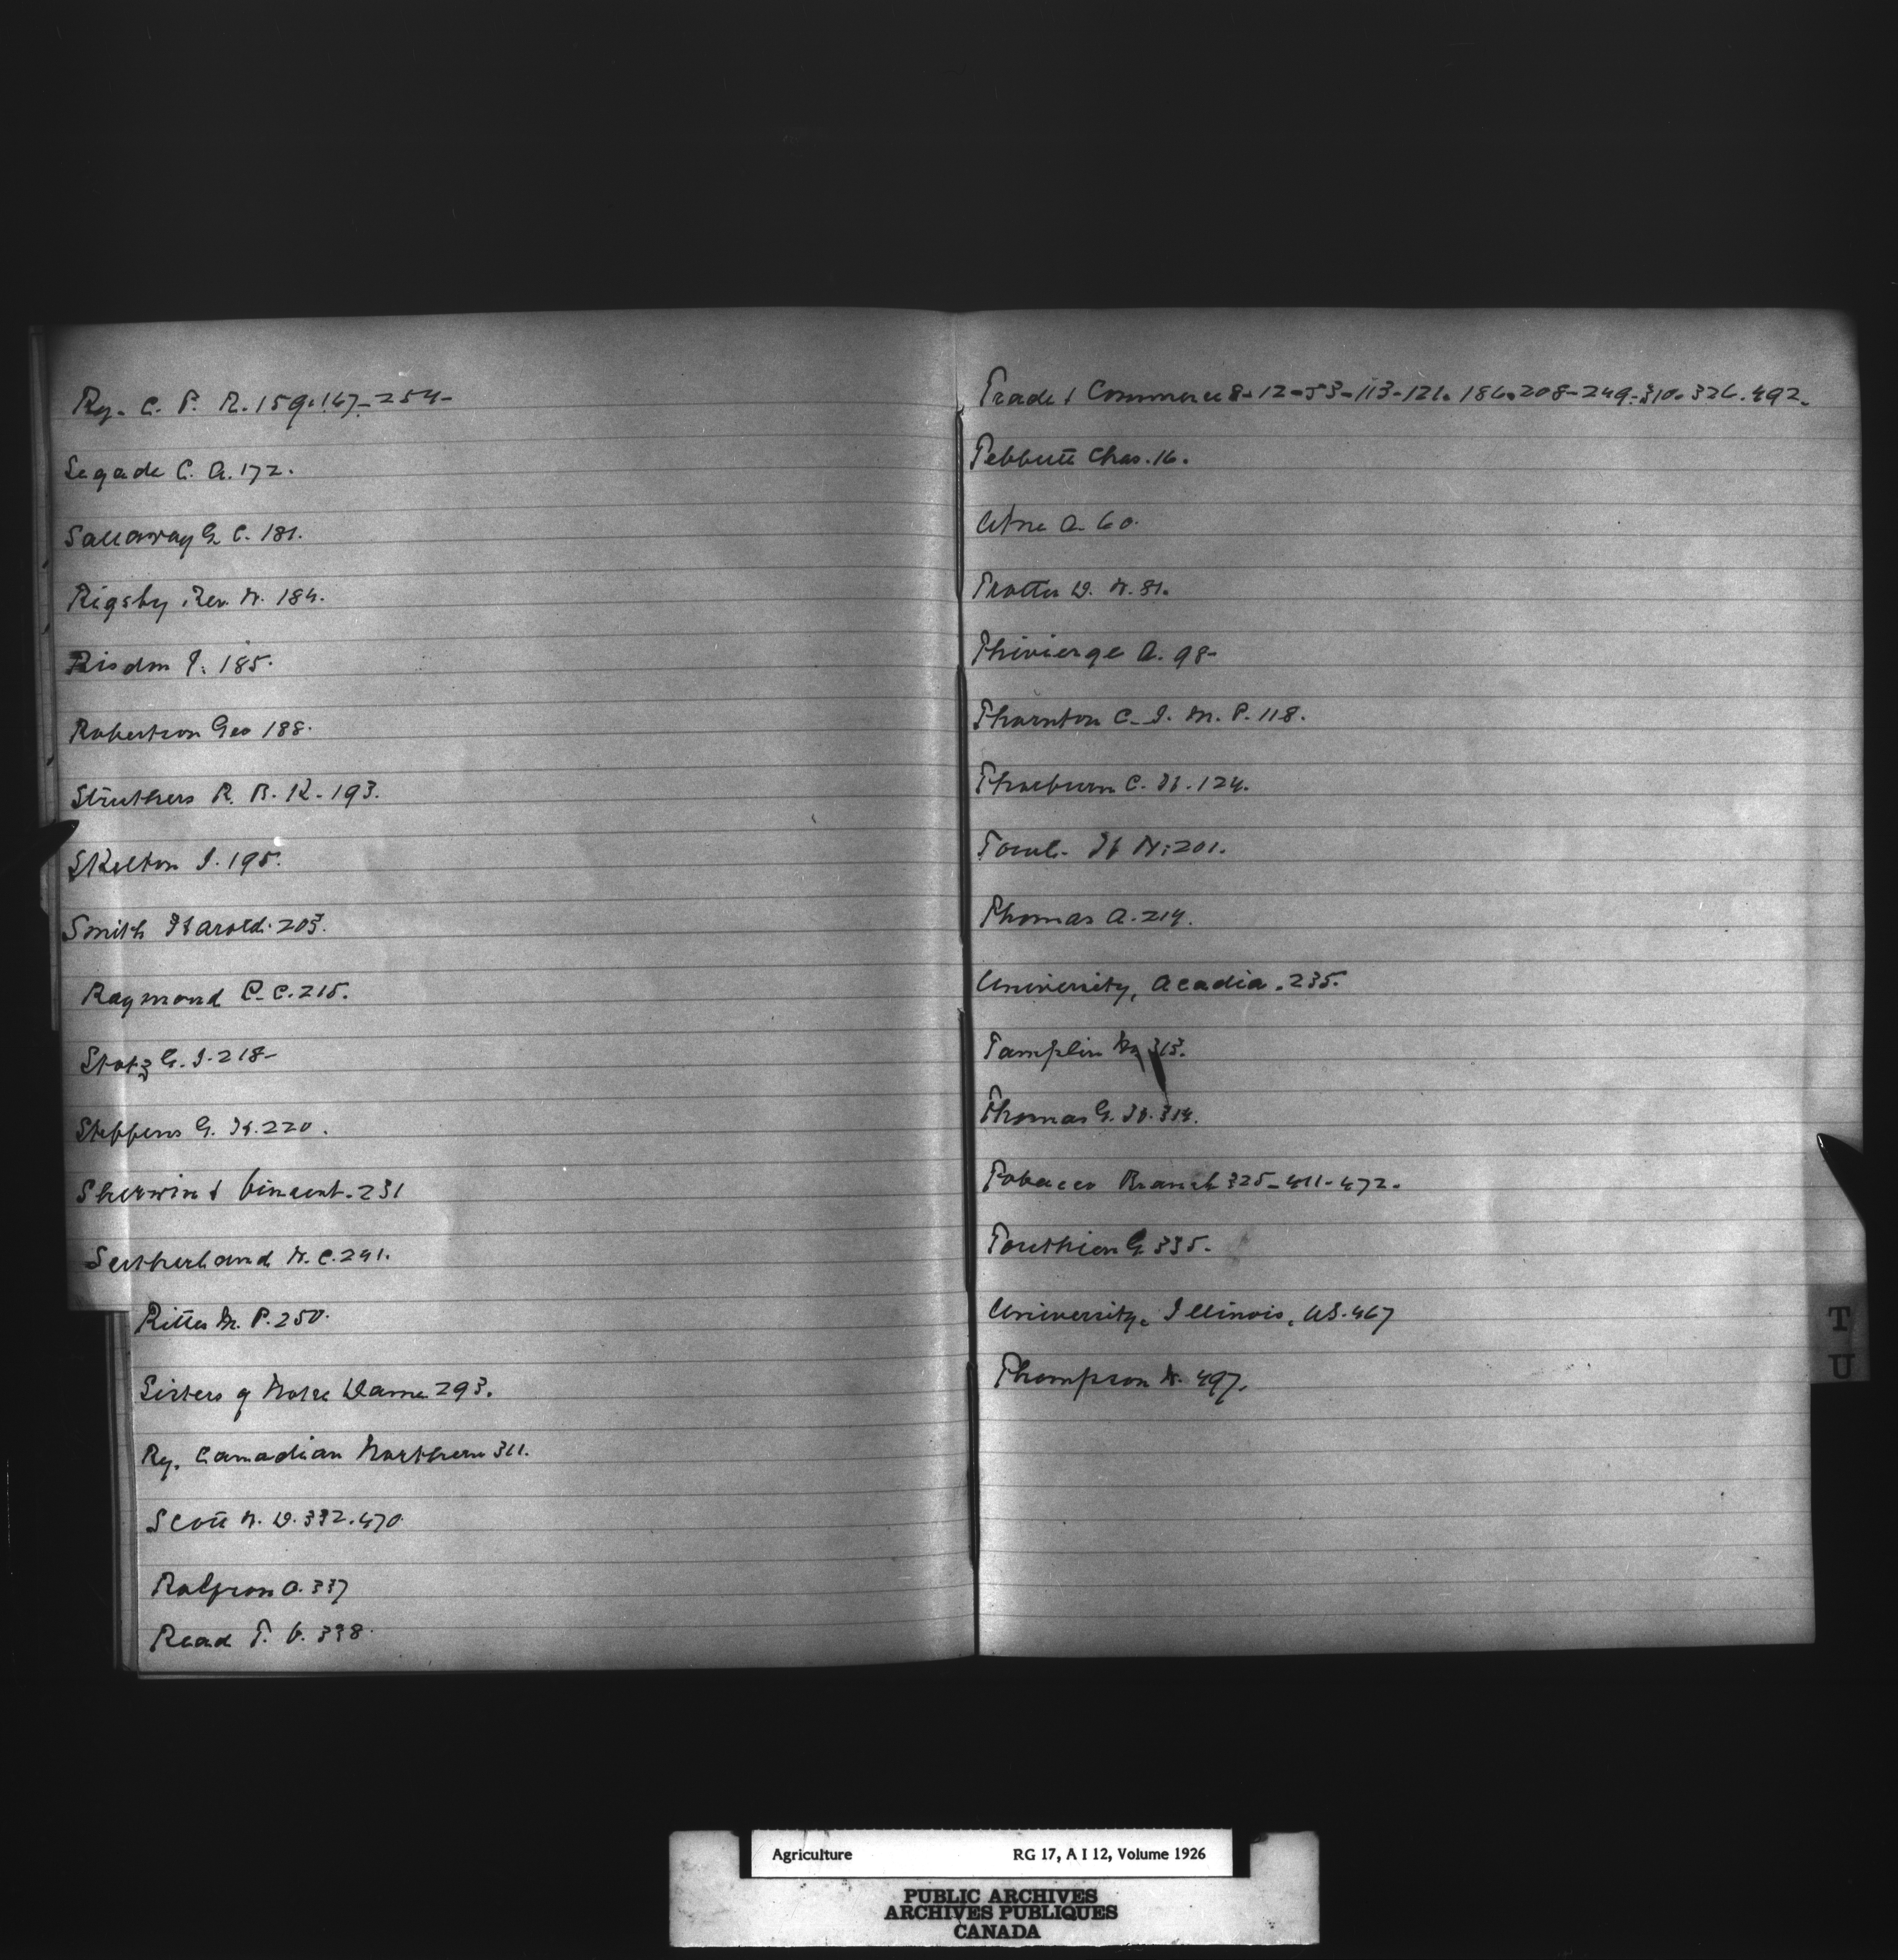 Ry. C. P. R. 159.167-254-
Segade C. A. 172.
Sallaway G. C. 181.
Rigsby Rev. W. 184.
Risdon J. 185.
Robertson Geo 188.
Struthers R. B. K. 193.
Skelton J. 195.
Smith Harold. 203.
Raymond C. C. 215.
Stotz G. J. 218-
Steffens G. H. 220.
Sherwin & Vincent. 231
Sutherland W. C. 241.
Ritter M. P. 250.
Sisters of Notre Dame 293.
Ry. Canadian Northern 311.
Scott W. D. 332.470.
Rolfson O. 337
Read T. V. 338.
Trade & Commerce 8-12-53-113-121. 186.208-249-310.326.492.
Tebbutt Chas. 16.
A. 60.
Trotter D. W. 81.
Thivierge A. 98-
Thornton C. J. M. P. 118.
Thorburn C. H. 124.
H W. 201.
Thomas A. 214.
University, Acadia. 235.
Tamplin 313.
Thomas G. H. 314.
Tobacco Branch 325-411-472.
G. 335.
University, Illinois, US. 467
Thompson W. 497.
T
U
Agriculture RG 17, A I 12, Volume 1926
PUBLIC ARCHIVES
ARCHIVES PUBLIQUES
CANADA